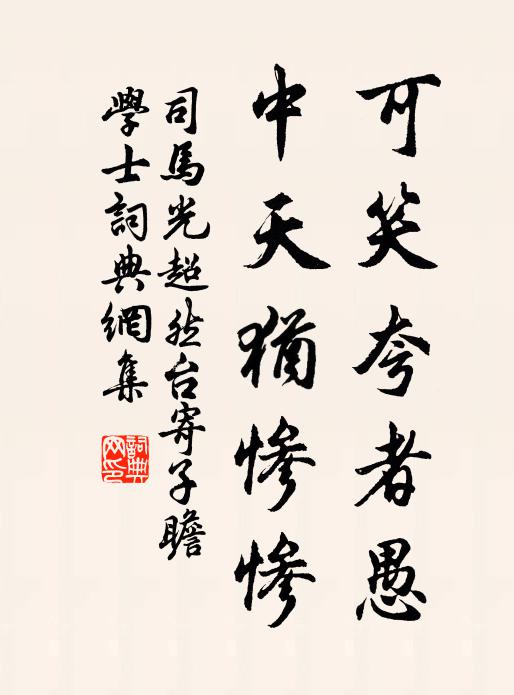 可笑夸者愚
中天猶慘慘
司馬光超然台寄子瞻
學士詞典網集
詞典网印